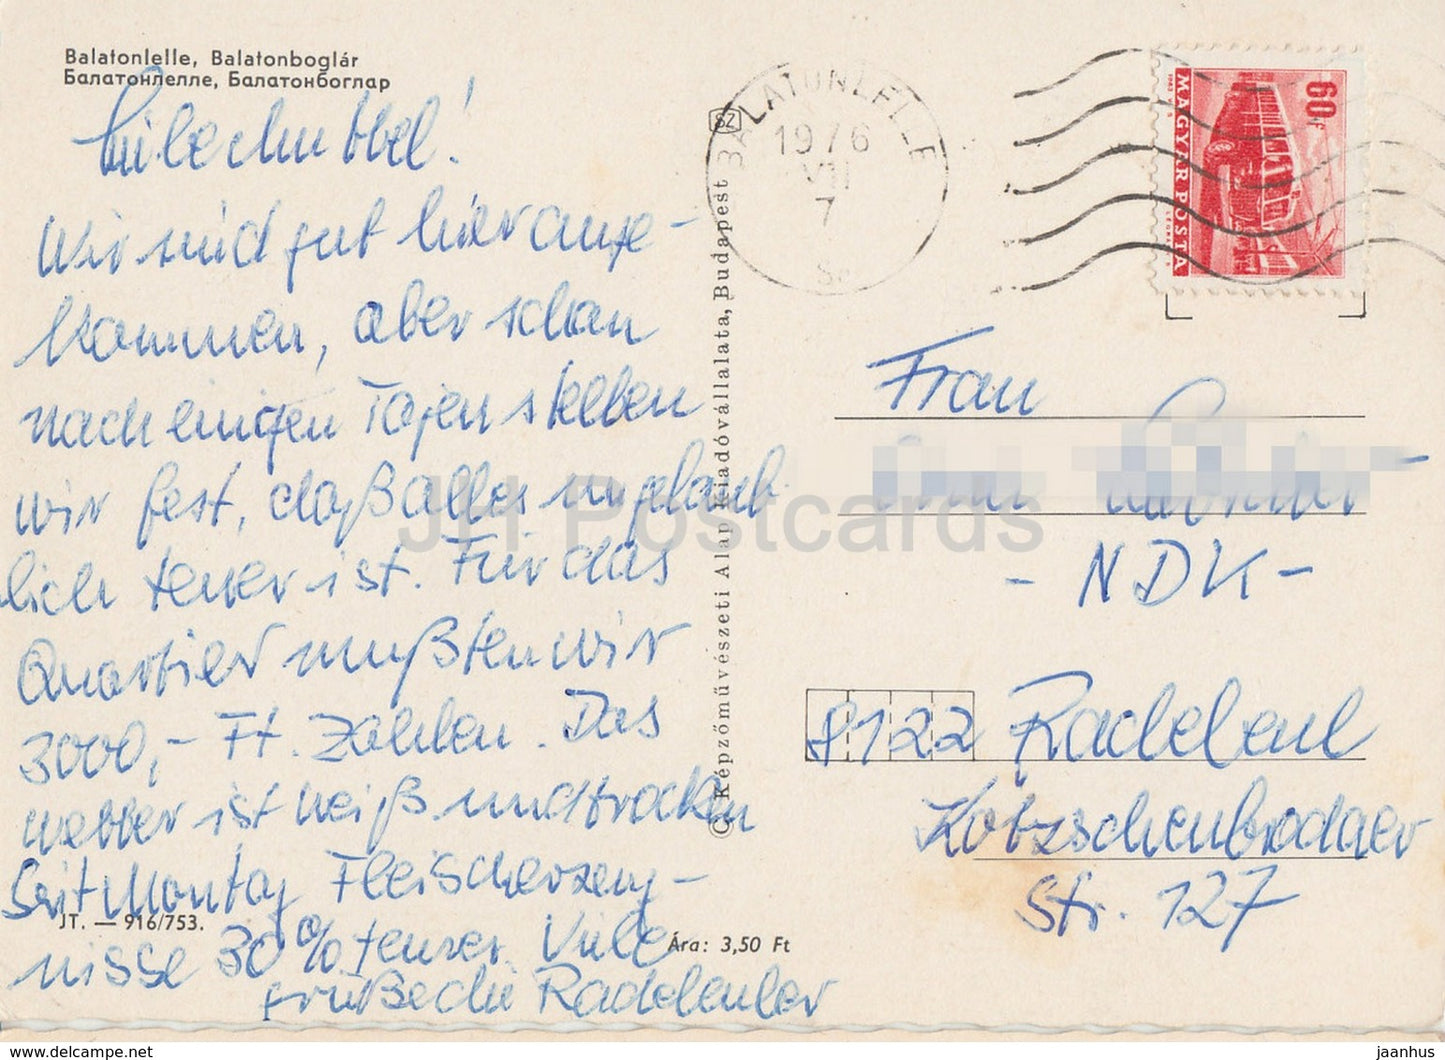 Balatonlelle, Balatonboglár
Балатонлелле, Балатонбоглар
Wir sind gut hier ange-
kommen, aber schon
nach einigen Tagen stellen
wir fest, daß alles unglaub-
lich teuer ist. Für das
Quartier mußten wir
3000,- Ft. zahlen. Das
Wetter ist heiß und trocken
Seit Montag Fleischerzeug-
nisse 30% teurer. Viele
Grüße die Radebeuler
JT. — 916/753.
Ára: 3,50 Ft
SZ
© Képzőművészeti Alap Kiadóvállalata, Budapest
BALATONLELLE
1976
VII
7
60f
MAGYAR POSTA
Frau
- NDK -
8122 Radebeul
Kötzschenbrodaer
Str. 127
JH Postcards
https://www.delcampe.net
jaanhus